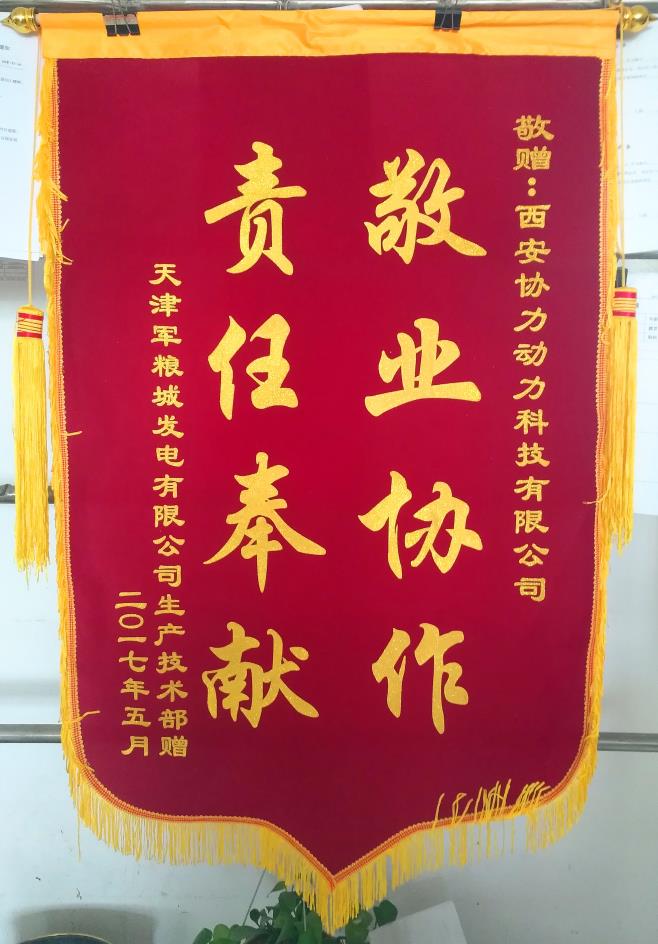 敬赠：西安协力动力科技有限公司
敬业协作
责任奉献
天津军粮城发电有限公司生产技术部赠
二〇一七年五月